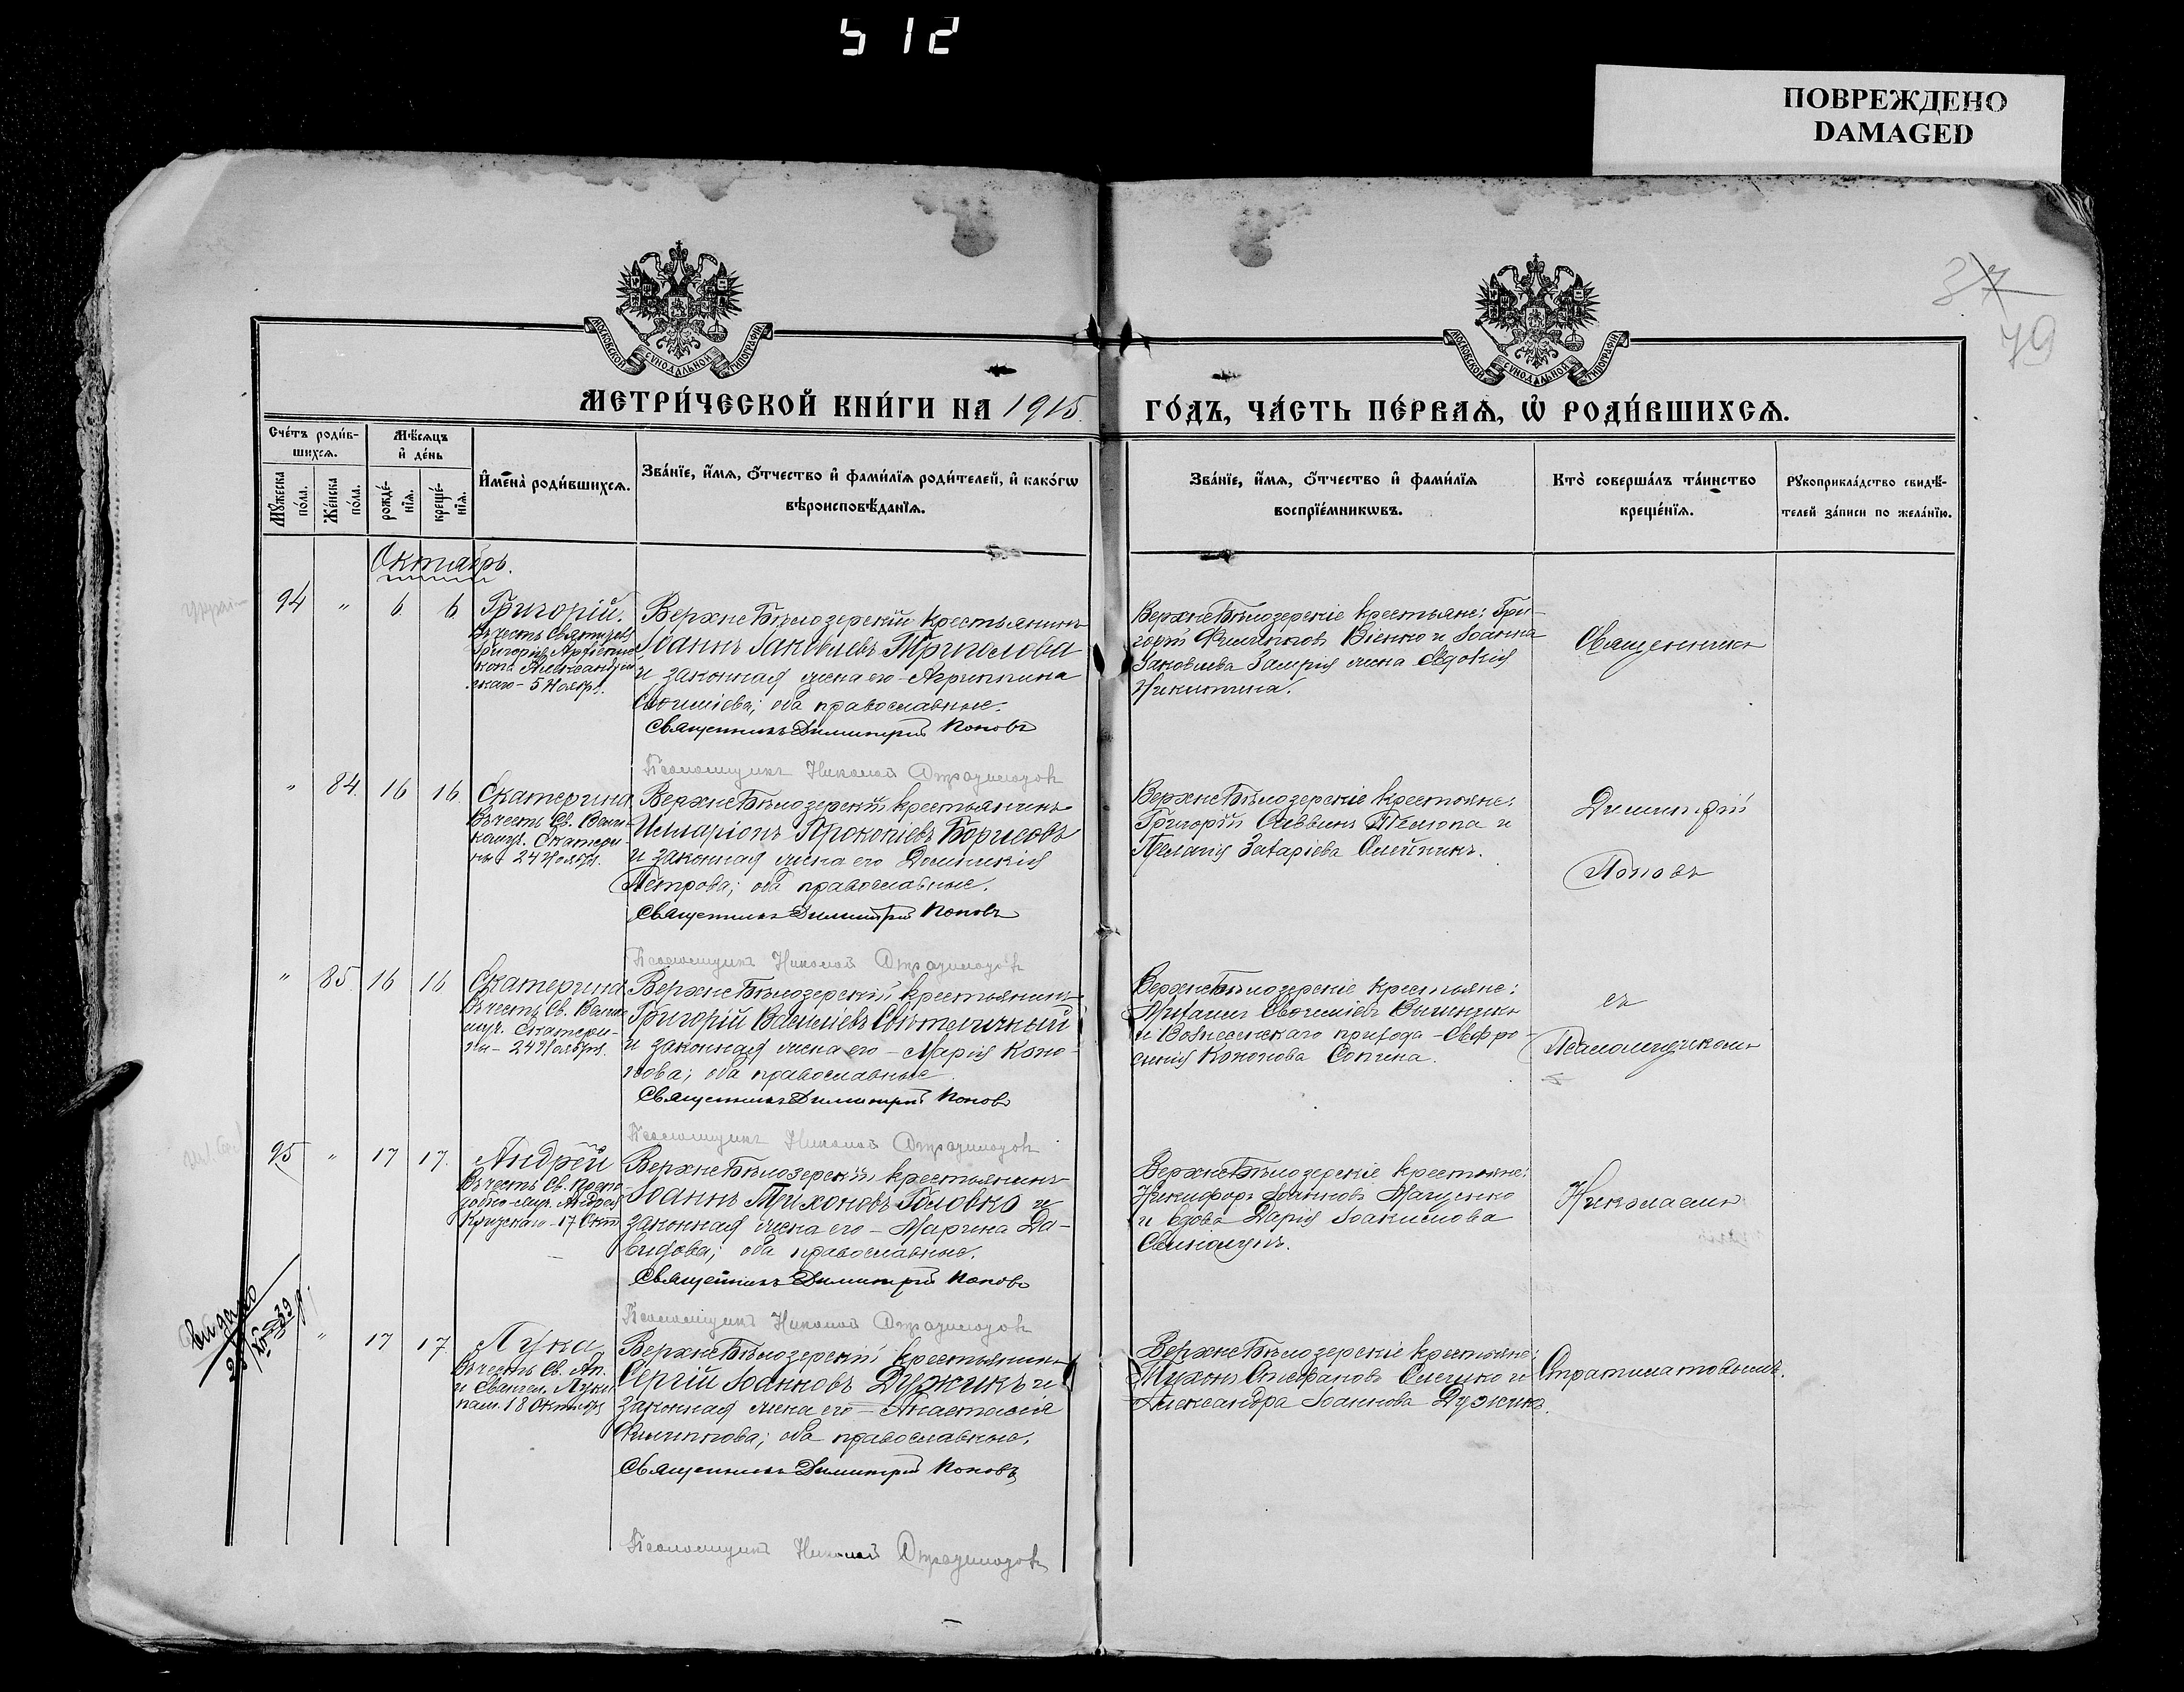 512
ПОВРЕЖДЕНО
DAMAGED
37
79
МОСКОВСКОЙ СѴНОДАЛЬНОЙ ТИПОГРАФІИ
МОСКОВСКОЙ СѴНОДАЛЬНОЙ ТИПОГРАФІИ
МЕТРИ́ЧЕСКОЙ КНИ́ГИ НА 1915
ГО́ДЪ, ЧА́СТЬ ПЕ́РВАѦ, Ѡ҆ РОДИ́ВШИХСѦ.
Сче́тъ роди́в-
шихсѧ.
Мѣ́сѧцъ
и҆ де́нь
Мꙋ́жеска
по́ла.
Же́нска
по́ла.
рожде́-
нїѧ.
креще́-
нїѧ.
И҆мена̀ роди́вшихсѧ.
Зва́нїе, и҆́мѧ, ѻ҆́тчество и҆ фами́лїѧ роди́телей, и҆ како́гѡ
вѣроисповѣ́данїѧ.
Зва́нїе, и҆́мѧ, ѻ҆́тчество и҆ фами́лїѧ
воспрїе́мникѡвъ.
Кто̀ соверша́лъ та́инство
креще́нїѧ.
Рꙋкоприкла́дство свидѣ́-
телей за́писи по жела́нїю.
Октябрь.
94 " 6 6 Григорій.
Въ честь Святителя
Григорія Архіепис
коп. Александрій
скаго - 5 Ноября.
ВерхнеБѣлозерскій крестьянинъ
Іоаннъ Іаковлевъ
и законная жена его - Агриппина
оба православные.
Священникъ Димитрій Поповъ
Псаломщикъ Николай Стратилатовъ
ВерхнеБѣлозерскіе крестьяне: Гри-
горій Филипповъ Віенко и Іоанна
Іаковлева жена Евдокія
Никитина.
Священникъ
" 84. 16 16. Екатерина
Въ честь Св. Вели-
комуч. Екатери-
ны 24 Ноября.
ВерхнеБѣлозерскій крестьянинъ
Илларіонъ Прокопіевъ Борисовъ
и законная жена его Домникія
Петрова; оба православные.
Священникъ Димитрій Поповъ
Псаломщикъ Николай Стратилатовъ
ВерхнеБѣлозерскіе крестьяне:
Григорій Саввинъ и
Пелагія Захаріева Олейникъ.
Димитрій
Поповъ
" 85. 16 16 Екатерина
Въ честь Св. Велико
муч. Екатери-
ны - 24 Ноября.
ВерхнеБѣлозерскій крестьянинъ
Григорій Василіевъ Свѣтличный
и законная жена его - Марія Коно-
нова; оба православные.
Священникъ Димитрій Поповъ
Псаломщикъ Николай Стратилатовъ
ВерхнеБѣлозерскіе крестьяне:
и Вознесенскаго прихода - Евфро-
синія Кононова Сопина.
съ
Псаломщикомъ
95 " 17 17. Андрей
Въ честь Св. Препо-
добно-муч. Андрея
Критскаго - 17 Окт.
ВерхнеБѣлозерскій крестьянинъ
Іоаннъ Тихоновъ Головко и
законная жена его - Марина Да-
видова; оба православные.
Священникъ Димитрій Поповъ
Псаломщикъ Николай Стратилатовъ
ВерхнеБѣлозерскіе крестьяне:
Никифоръ Іоанновъ Маценко
и вдова Дарія Іоакимова
Николаемъ
видано
" 17 17. Лука
Въ честь Св. Ап.
и Евангел. Луки
пам. 18 Октября
ВерхнеБѣлозерскій крестьянинъ
Сергій Іоанновъ Дужикъ и
законная жена его - Анастасія
Филиппова; оба православные.
Священникъ Димитрій Поповъ
Псаломщикъ Николай Стратилатовъ
ВерхнеБѣлозерскіе крестьяне:
Тихонъ Стефановъ и
Александра Іоаннова Дужика.
Стратилатовымъ.